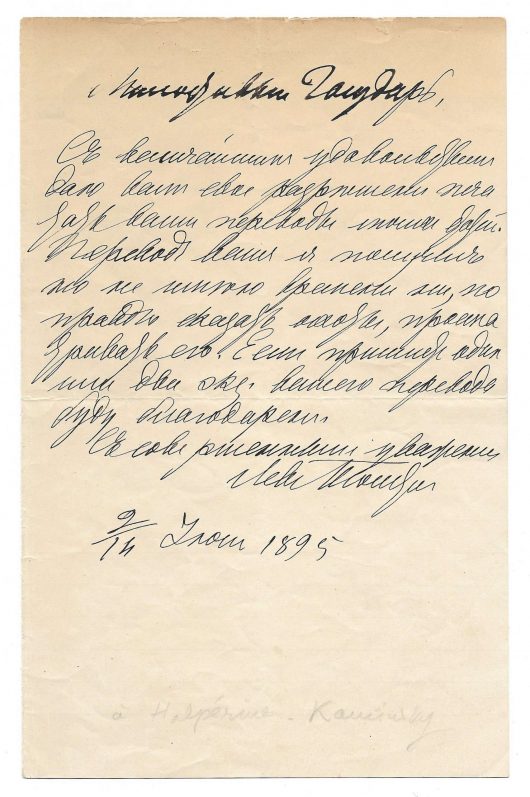 Милостивый Государь,
Съ величайшимъ удовольствіемъ
даю вамъ свое разрешеніе печа
тать ваши переводы моихъ
Переводъ вашъ я получилъ
но не имѣю времени ни, по
правдѣ сказать охоты, просма
тривать его. Если пришлете одинъ
или два экз. вашего перевода
буду благодаренъ.
Съ совершеннымъ уваженіемъ
Левъ Толстой
2/14 Іюня 1895
à Halpérine-Kaminsky